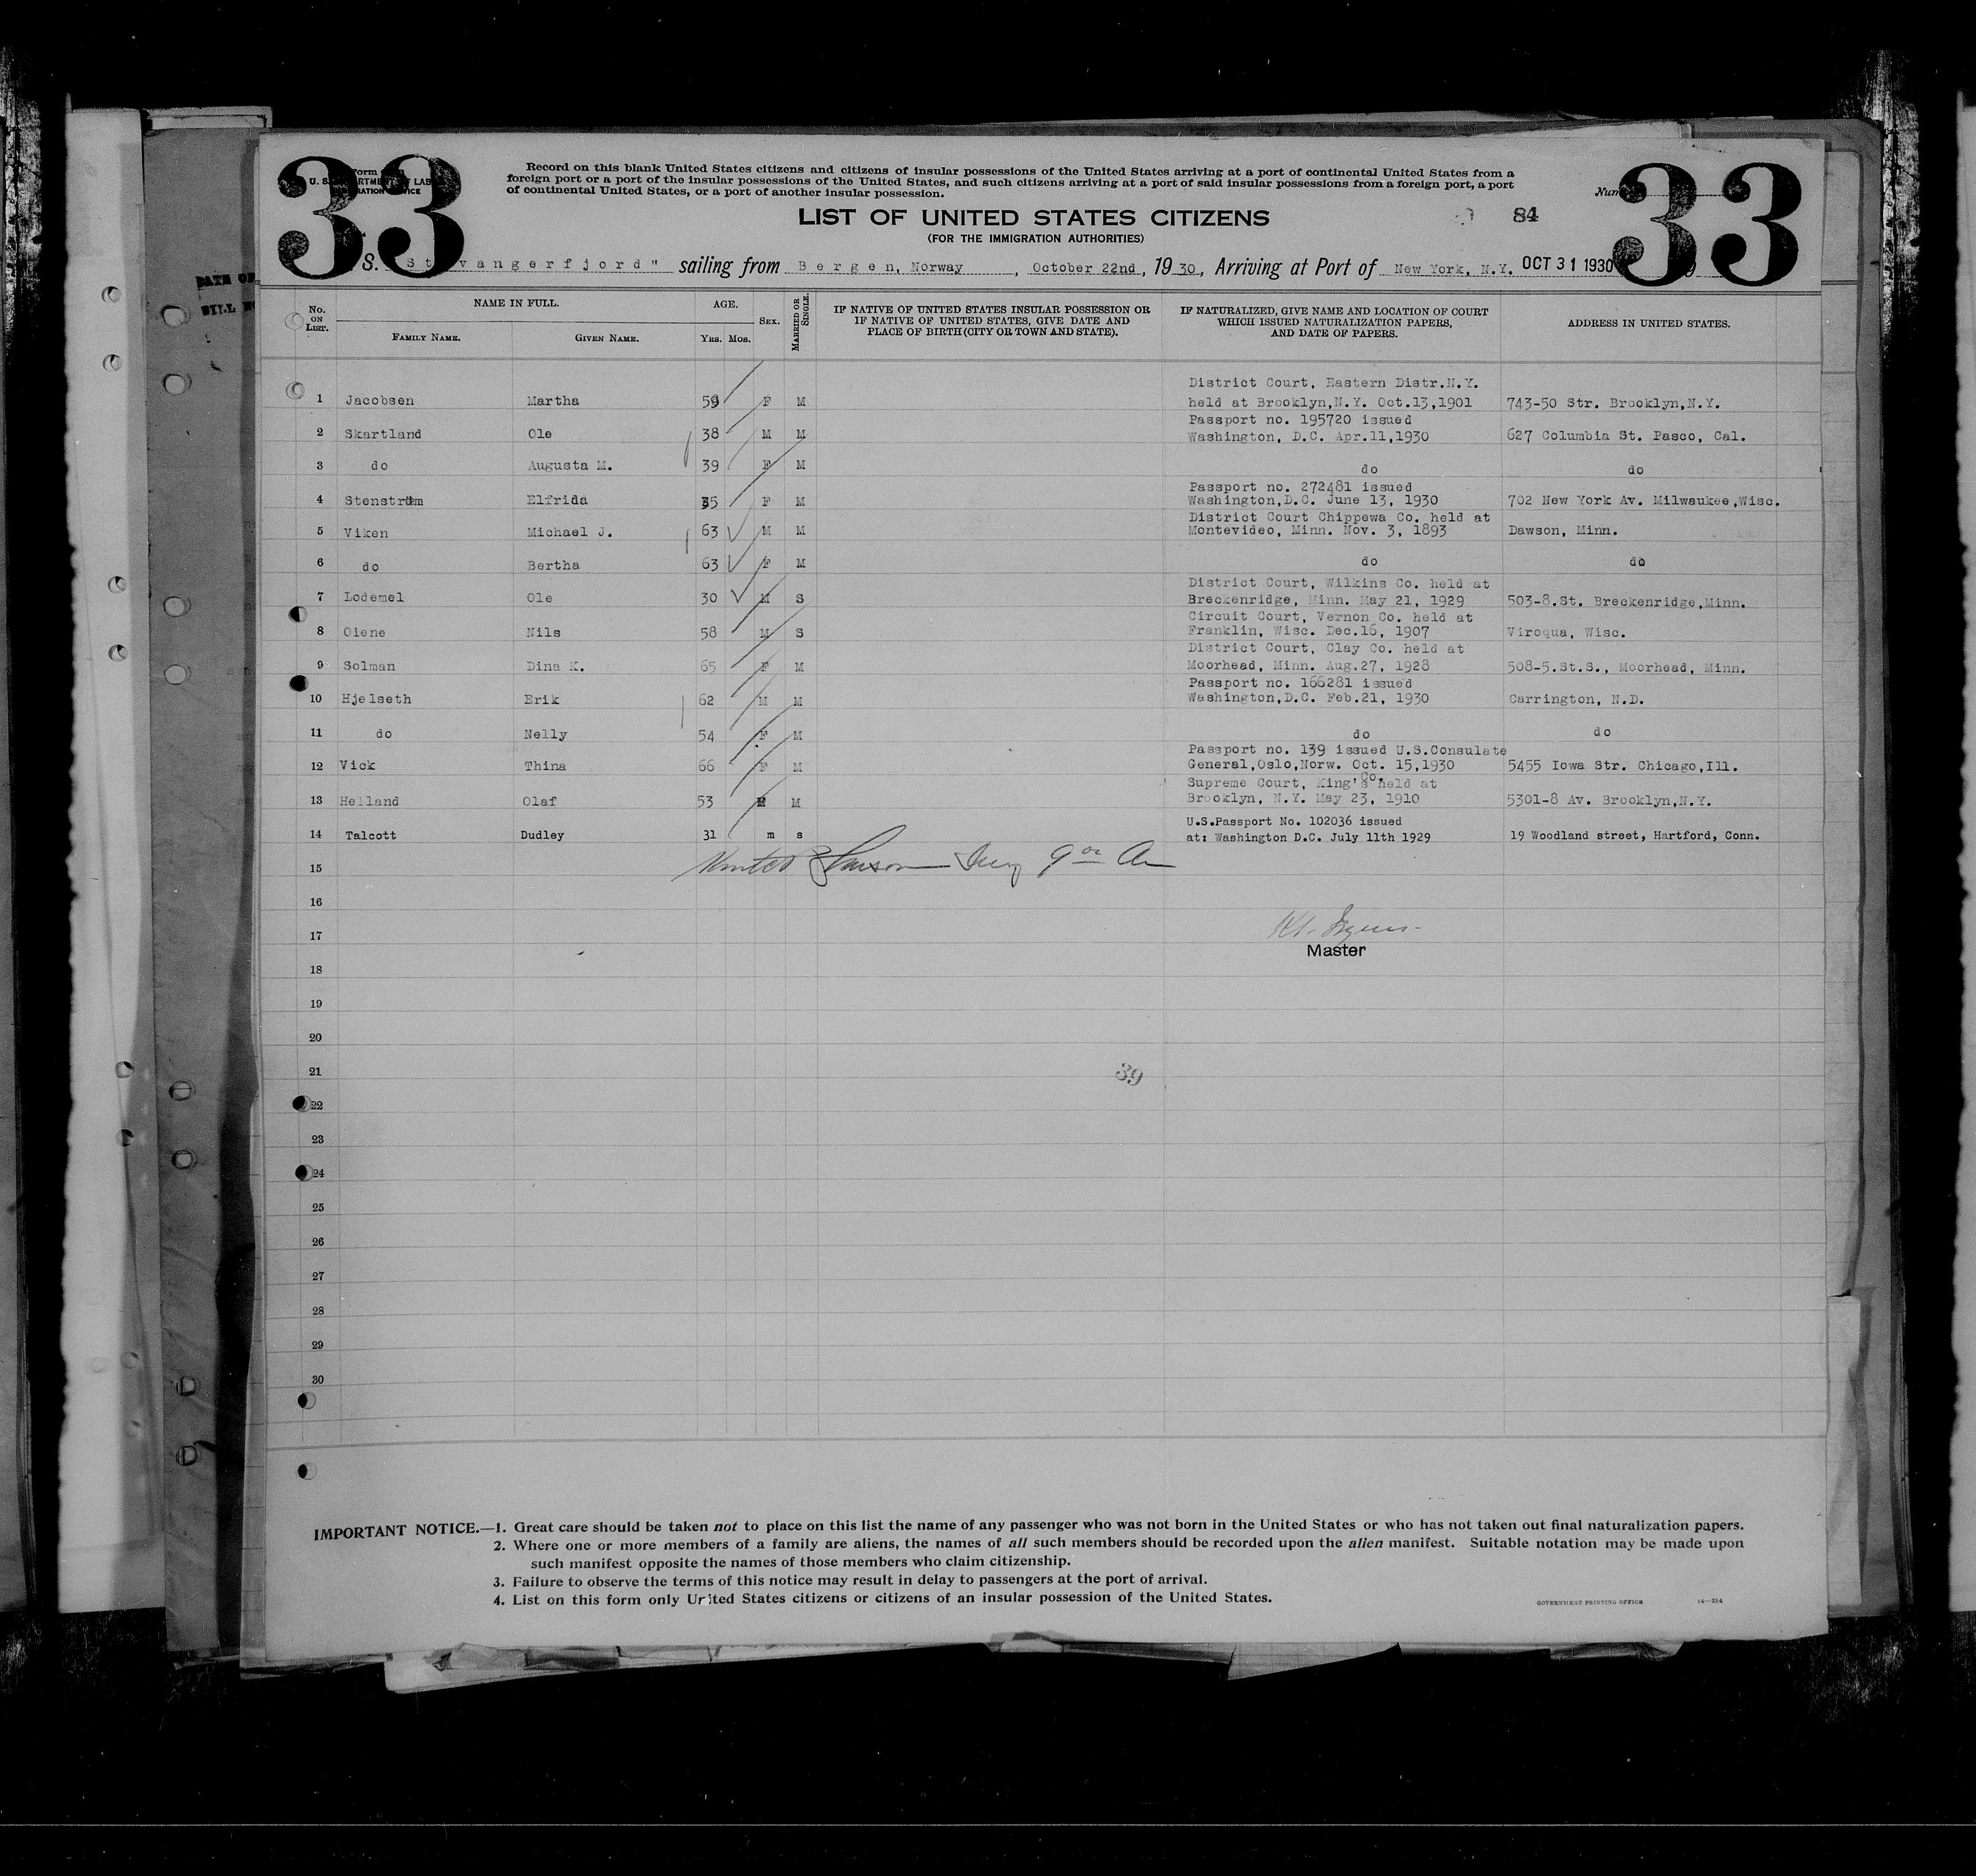 33
33
Record on this blank United States citizens and citizens of insular possessions of the United States arriving at a port of continental United States from a
foreign port or a port of the insular possessions of the United States, and such citizens arriving at a port of said insular possessions from a foreign port, a port
of continental United States, or a port of another insular possession.
LIST OF UNITED STATES CITIZENS
84
(FOR THE IMMIGRATION AUTHORITIES)
S. "Stavangerfjord" sailing from Bergen, Norway, October 22nd, 1930, Arriving at Port of New York, N.Y. OCT 31 1930
No. ON LIST.
NAME IN FULL.
FAMILY NAME.
GIVEN NAME.
AGE.
YRS. MOS.
SEX.
MARRIED OR SINGLE.
IF NATIVE OF UNITED STATES INSULAR POSSESSION OR
IF NATIVE OF UNITED STATES, GIVE DATE AND
PLACE OF BIRTH (CITY OR TOWN AND STATE).
IF NATURALIZED, GIVE NAME AND LOCATION OF COURT
WHICH ISSUED NATURALIZATION PAPERS,
AND DATE OF PAPERS.
ADDRESS IN UNITED STATES.
District Court, Eastern Distr.N.Y.
1 Jacobsen Martha 59 F M held at Brooklyn,N.Y. Oct.13,1901 743-50 Str. Brooklyn,N.Y.
Passport no. 195720 issued
2 Skartland Ole 38 M M Washington, D.C. Apr.11,1930 627 Columbia St. Pasco, Cal.
3 do Augusta M. 39 F M do do
Passport no. 272481 issued
4 Stenström Elfrida 35 F M Washington,D.C. June 13, 1930 702 New York Av. Milwaukee,Wisc.
District Court Chippewa Co. held at
5 Viken Michael J. 63 M M Montevideo, Minn. Nov. 3, 1893 Dawson, Minn.
6 do Bertha 63 F M do do
District Court, Wilkins Co. held at
7 Lodemel Ole 30 M S Breckenridge, Minn. May 21, 1929 503-8.St. Breckenridge,Minn.
Circuit Court, Vernon Co. held at
8 Oiene Nils 58 M S Franklin, Wisc. Dec.16, 1907 Viroqua, Wisc.
District Court, Clay Co. held at
9 Solman Dina K. 65 F M Moorhead, Minn. Aug.27, 1928 508-5.St.S., Moorhead, Minn.
Passport no. 166281 issued
10 Hjelseth Erik 62 M M Washington,D.C. Feb.21, 1930 Carrington, N.D.
11 do Nelly 54 F M do do
Passport no. 139 issued U.S.Consulate
12 Vick Thina 66 F M General,Oslo,Norw. Oct. 15,1930 5455 Iowa Str. Chicago,Ill.
Supreme Court, King's Co. held at
13 Helland Olaf 53 M M Brooklyn, N.Y. May 23, 1910 5301-8 Av. Brooklyn,N.Y.
U.S.Passport No. 102036 issued
14 Talcott Dudley 31 m s at: Washington D.C. July 11th 1929 19 Woodland street, Hartford, Conn.
15
16
17
Master
18
19
20
21
39
22
23
24
25
26
27
28
29
30
IMPORTANT NOTICE.—1. Great care should be taken not to place on this list the name of any passenger who was not born in the United States or who has not taken out final naturalization papers.
2. Where one or more members of a family are aliens, the names of all such members should be recorded upon the alien manifest. Suitable notation may be made upon
such manifest opposite the names of those members who claim citizenship.
3. Failure to observe the terms of this notice may result in delay to passengers at the port of arrival.
4. List on this form only United States citizens or citizens of an insular possession of the United States.
GOVERNMENT PRINTING OFFICE 14—214